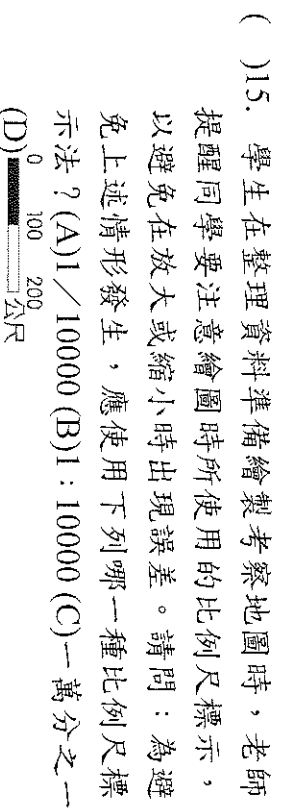 (　)15. 學生在整理資料準備繪製考察地圖時，老師
提醒同學要注意繪圖時所使用的比例尺標示，
以避免在放大或縮小時出現誤差。請問：為避
免上述情形發生，應使用下列哪一種比例尺標
示法？(A)1／10000 (B)1：10000 (C)一萬分之一
(D) 0 100 200 公尺